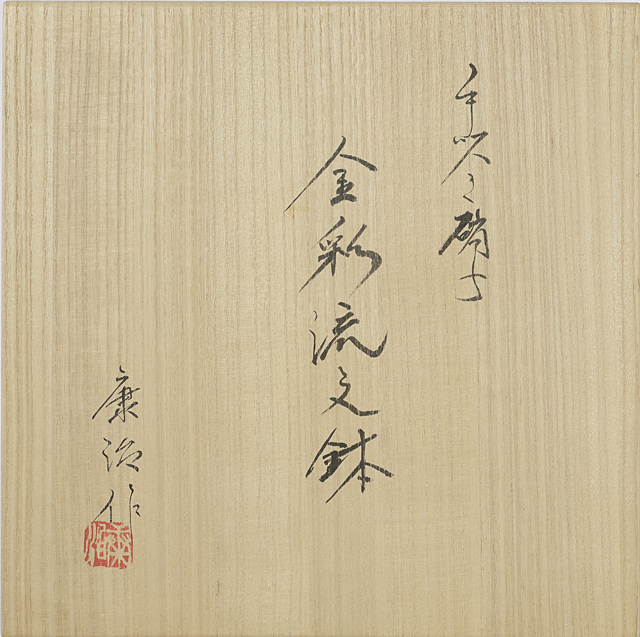 手吹き硝子
金彩流文鉢
康治作
康治